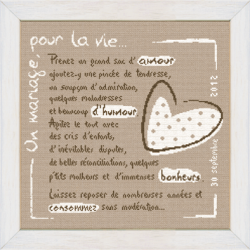 Un mariage,
pour la vie...
Prenez un grand sac d'amour
ajoutez-y une pincée de tendresse,
un soupçon d'admiration,
quelques maladresses
et beaucoup d'humour
Agitez le tout avec
des cris d'enfants,
d'inévitables disputes,
de belles réconciliations, quelques
p'tits malheurs et d'immenses bonheurs.
Laissez reposer de nombreuses années et
consommez sans modération...
30 septembre 2012